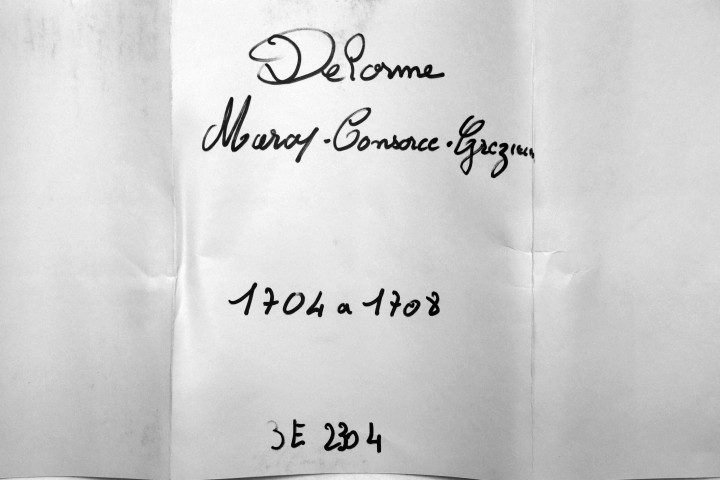 Delorme
Maroy · Consorce · Grezieu
1704 a 1708
3E 2304